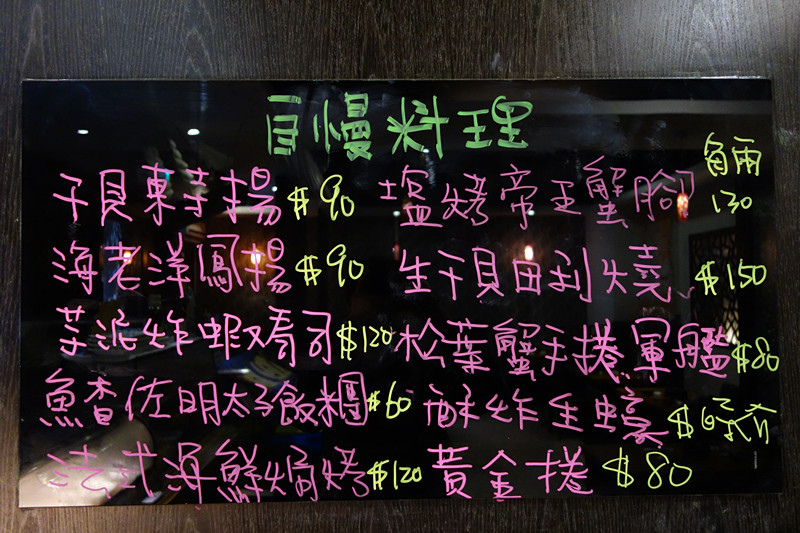 自慢料理
干貝東寺揚 $90
塩烤帝王蟹腳 每兩 130
海老洋鳳揚 $90
生干貝田利燒 $150
菜派炸蝦壽司 $120
松葉蟹手捲軍艦 $80
魚杳佐明太子飯糰 $60
酥炸生蠔 $時介
法式海鮮焗烤 $120
黃金捲 $80